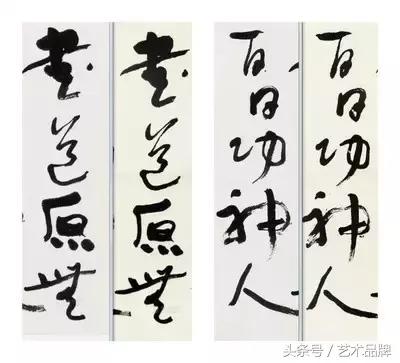 書道原無
書道原無
百日功神人
百日功神人
头条号 / 艺术品牌